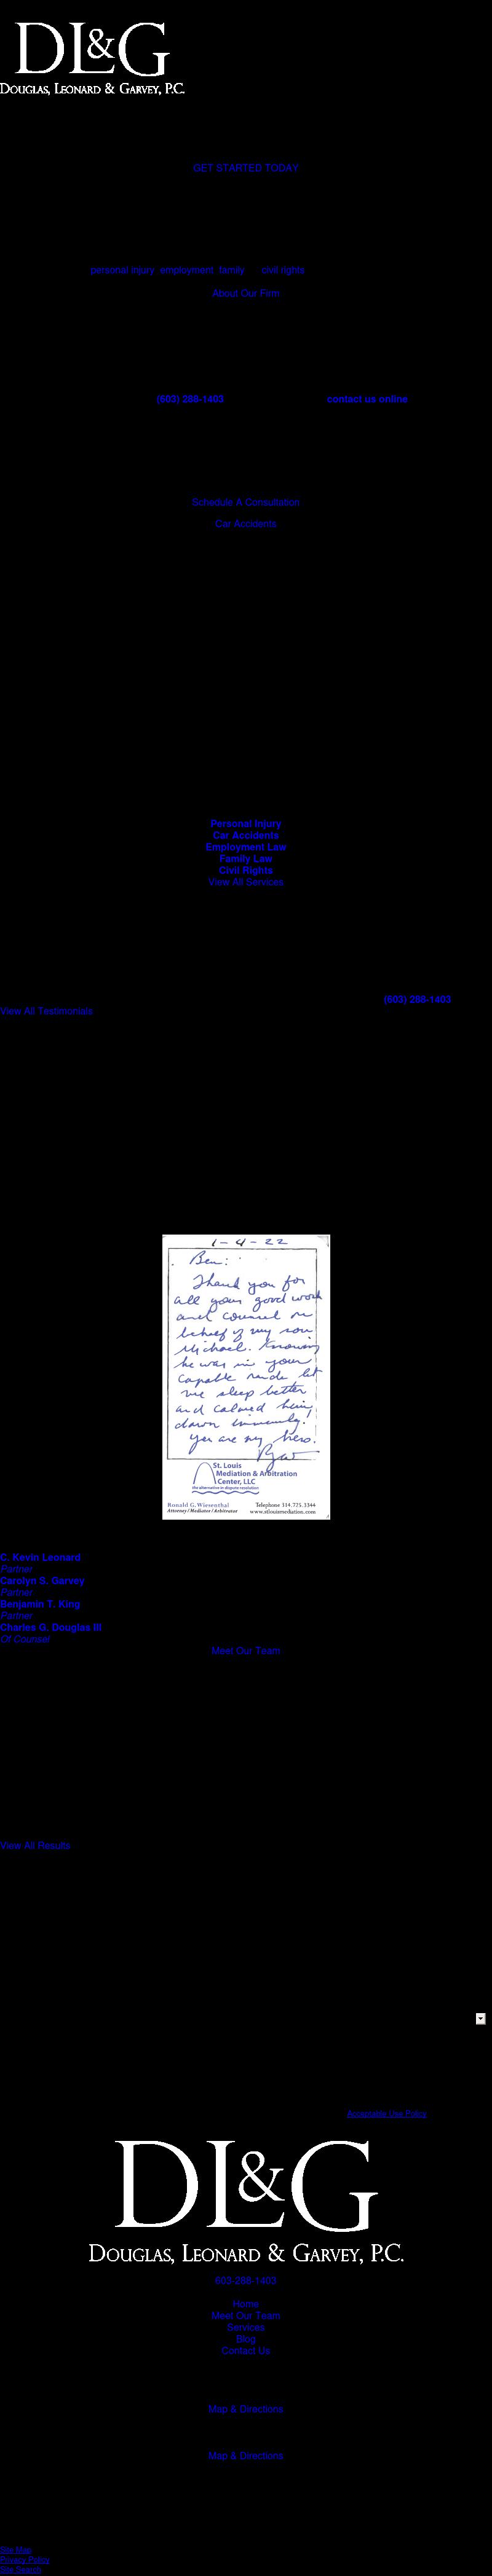 DL&G
DOUGLAS, LEONARD & GARVEY, P.C.
GET STARTED TODAY
personal injury employment family civil rights
About Our Firm
(603) 288-1403 contact us online
Schedule A Consultation
Car Accidents
Personal Injury
Car Accidents
Employment Law
Family Law
Civil Rights
View All Services
(603) 288-1403
View All Testimonials
1-4-22
Ben:
Thank you for
all your good work
and counsel on
behalf of my son
Michael. Knowing
he was in your
capable hands let
me sleep better
and calmed him
down immensely.
You are my hero.
St. Louis
Mediation & Arbitration
Center, LLC
the alternative in dispute resolution
Ronald G. Wiesenthal Telephone 314.725.3344
Attorney / Mediator / Arbitrator www.stlouismediation.com
C. Kevin Leonard
Partner
Carolyn S. Garvey
Partner
Benjamin T. King
Partner
Charles G. Douglas III
Of Counsel
Meet Our Team
View All Results
Acceptable Use Policy
DL&G
DOUGLAS, LEONARD & GARVEY, P.C.
603-288-1403
Home
Meet Our Team
Services
Blog
Contact Us
Map & Directions
Map & Directions
Site Map
Privacy Policy
Site Search